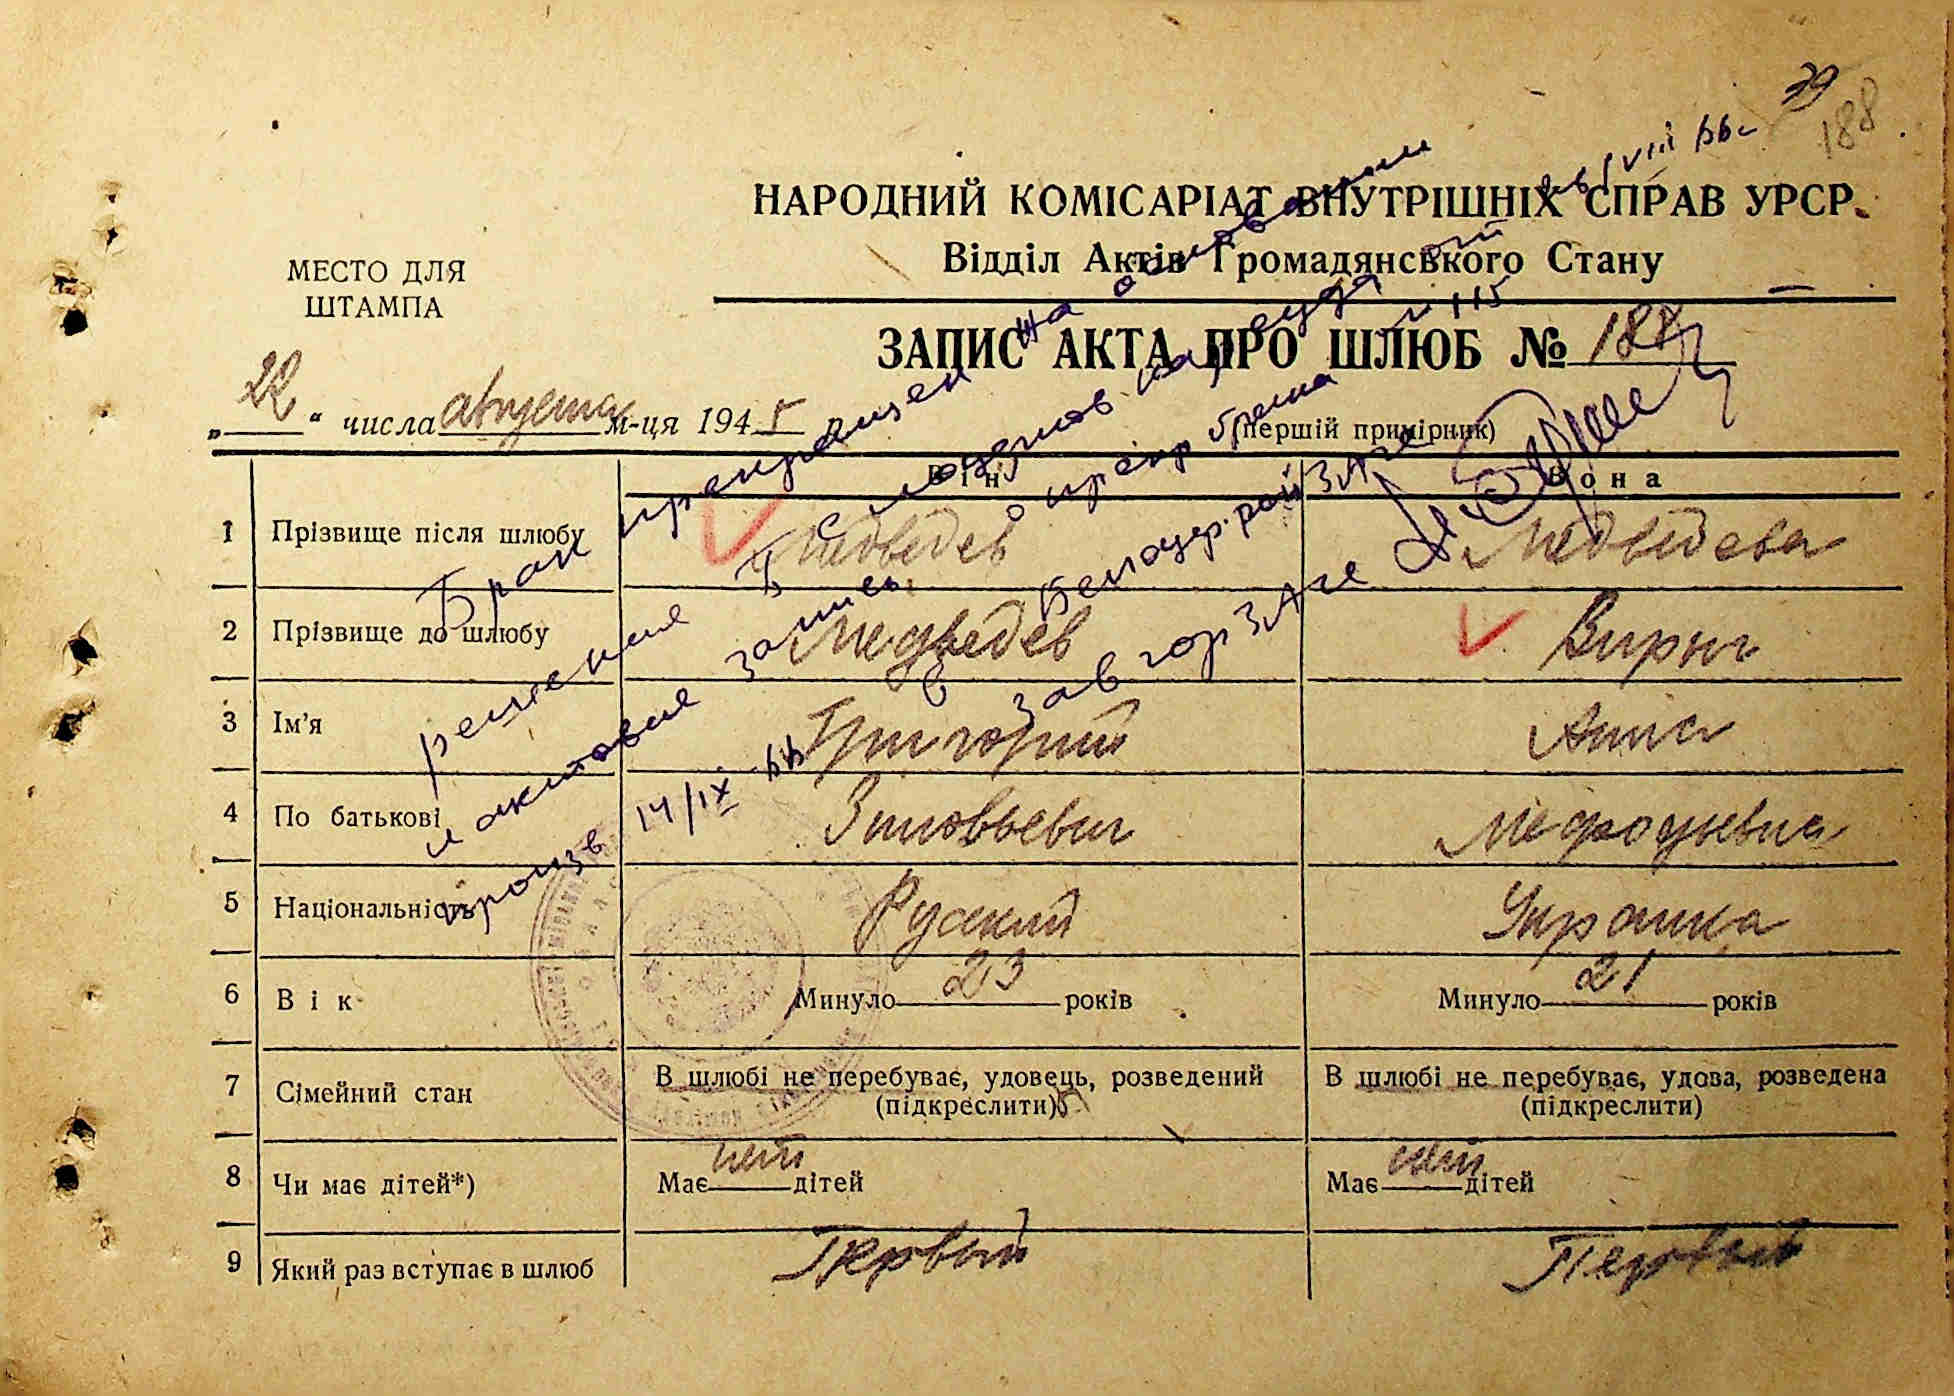 79
188
НАРОДНИЙ КОМІСАРІАТ ВНУТРІШНІХ СПРАВ УРСР
Відділ Актів Громадянського Стану
МЕСТО ДЛЯ
ШТАМПА
ЗАПИС АКТА ПРО ШЛЮБ № 188
„22“ числа августа м-ця 1945 р.
(перший примірник)
Він Вона
1 Прізвище після шлюбу Медведев Медведева
2 Прізвище до шлюбу Медведев Вирыч
3 Ім'я Григорий Анна
4 По батькові Зиновьевич Мефодьевна
5 Національність Русский Украинка
6 Вік Минуло 23 років Минуло 21 років
7 Сімейний стан В шлюбі не перебуває, удовець, розведений (підкреслити) В шлюбі не перебуває, удова, розведена (підкреслити)
8 Чи має дітей*) Має нет дітей Має нет дітей
9 Який раз вступає в шлюб Первый Первый
Брак прекращен на основании
решения нарсуда от VIII 66г
и актовые записи о прекр брака № 115
произв в Белоцер. рай ЗАГСе
14/IX 66 Зав гор ЗАГС